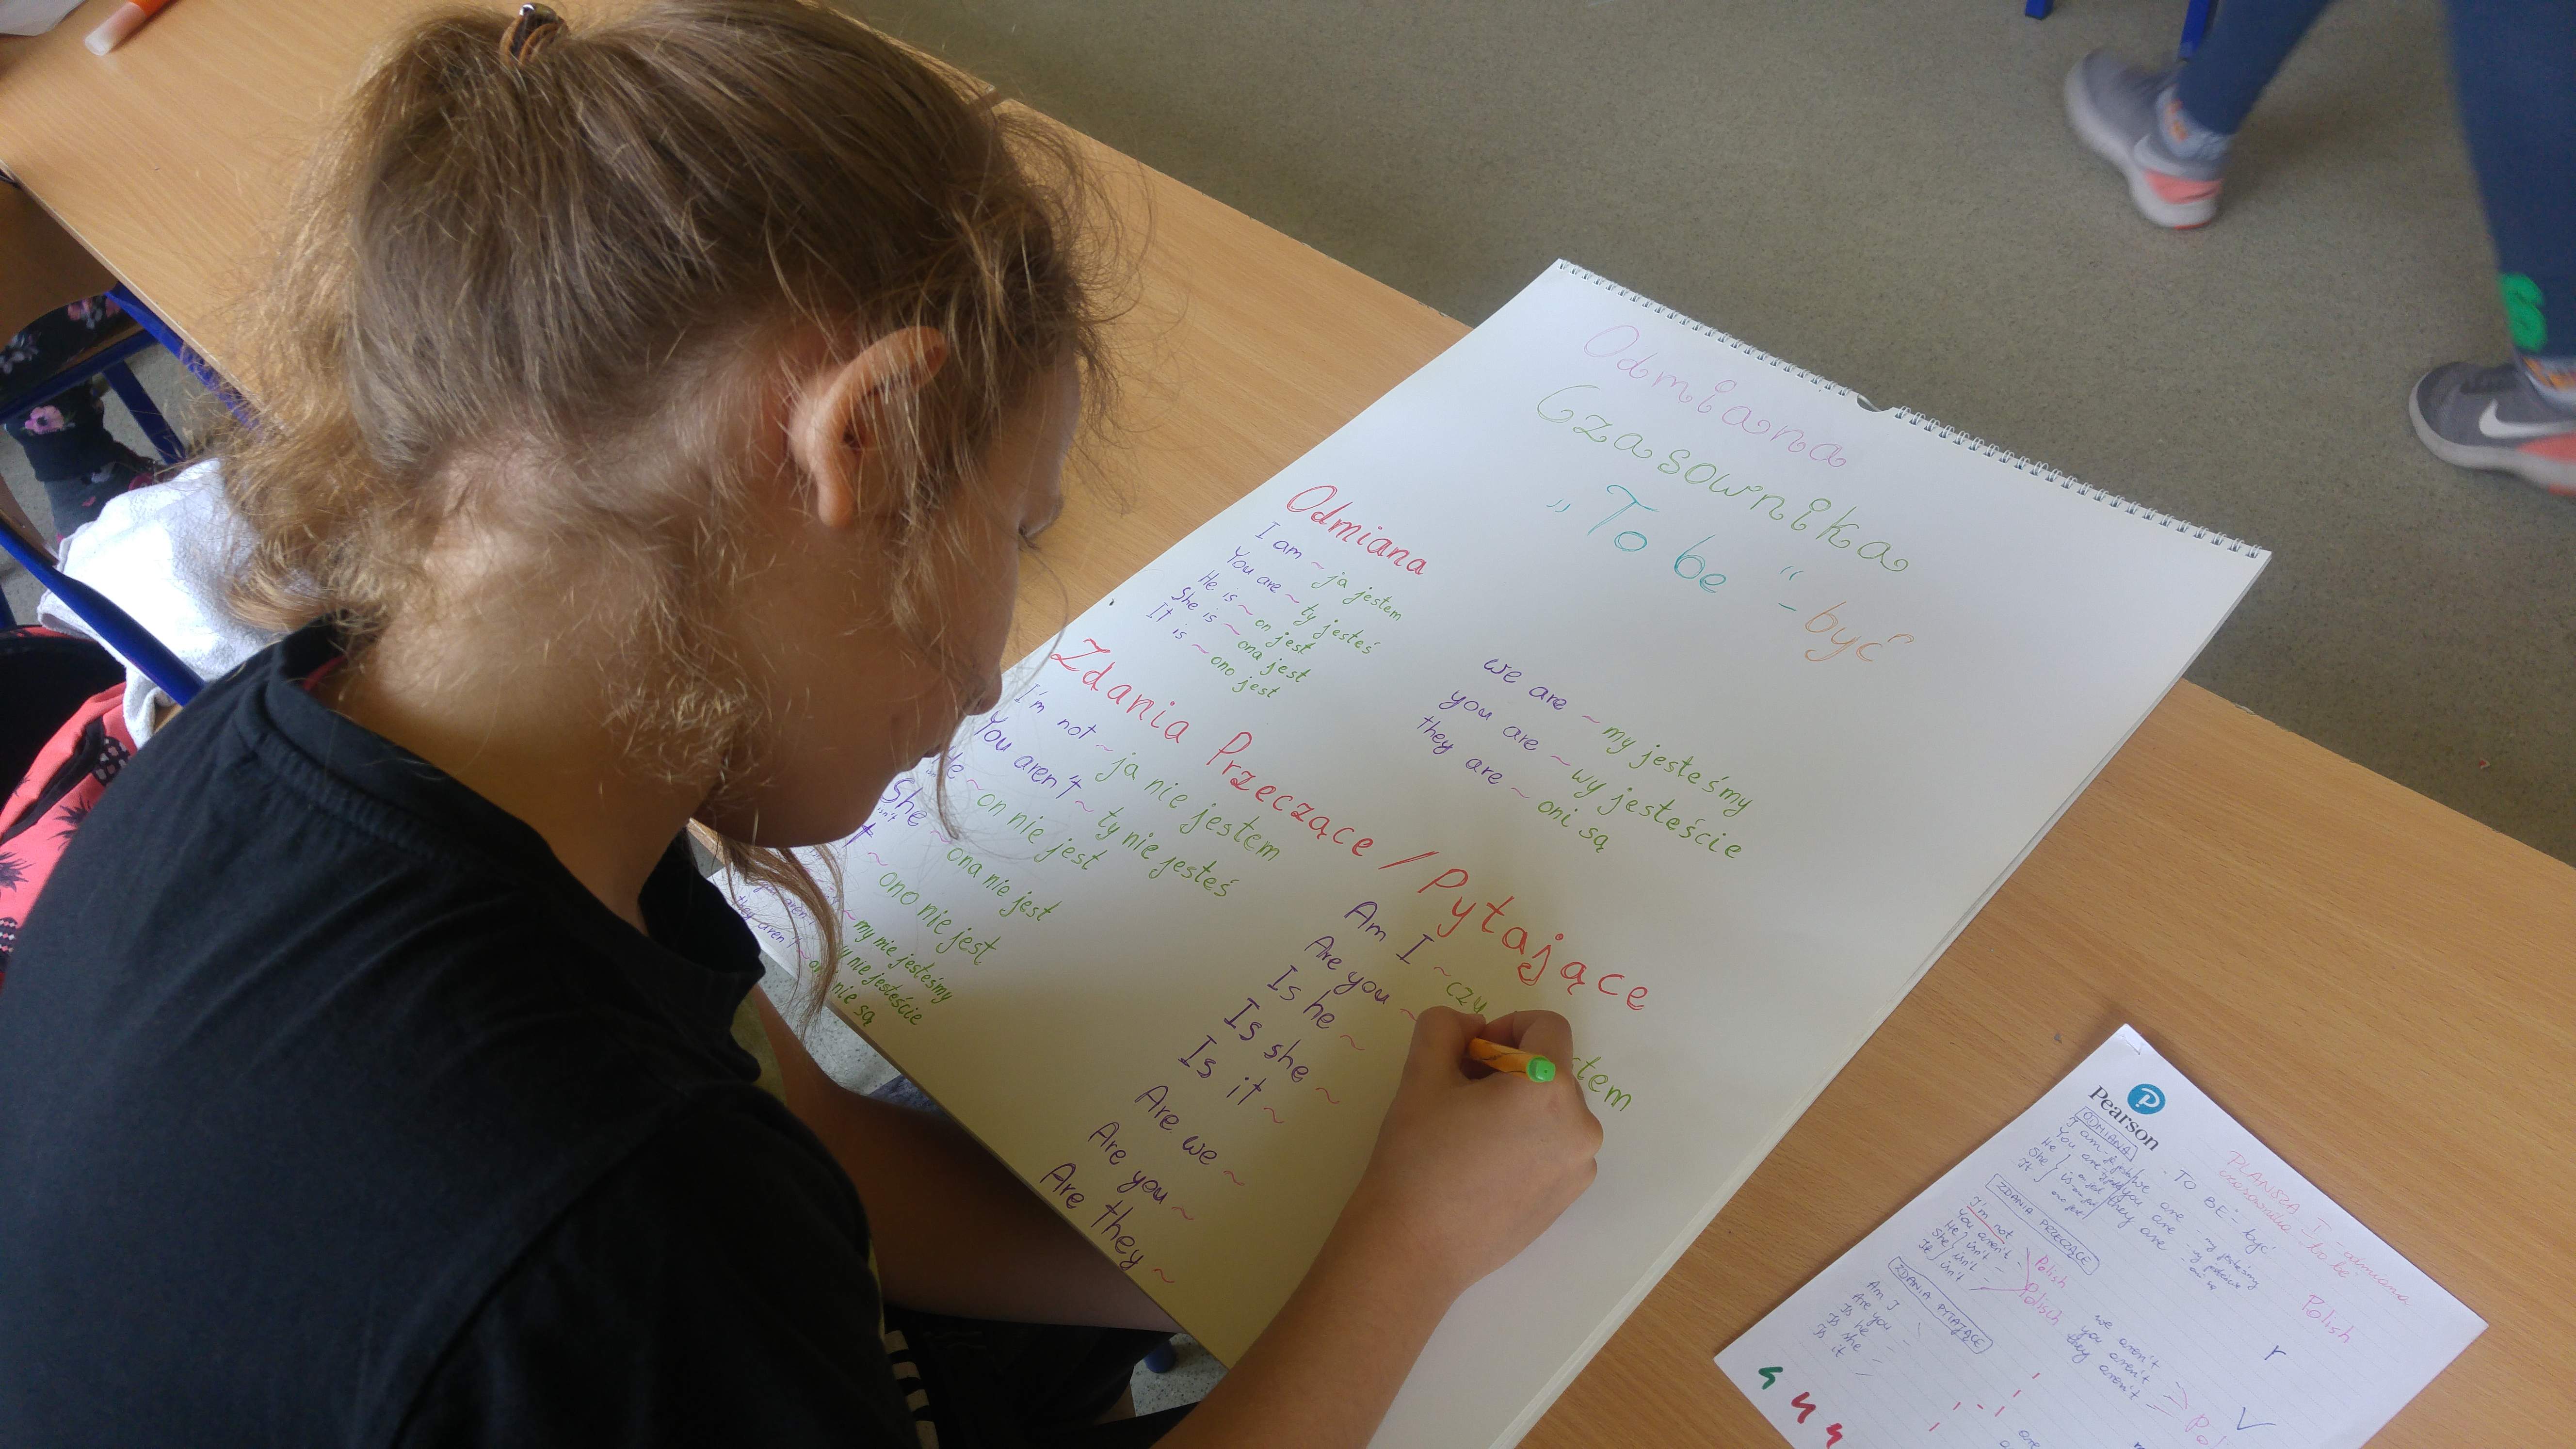 Odmiana
Czasownika
„To be" - być
Odmiana
I am ~ ja jestem
You are ~ ty jesteś
He is ~ on jest
She is ~ ona jest
It is ~ ono jest
we are ~ my jesteśmy
you are ~ wy jesteście
they are ~ oni są
Zdania Przeczące / Pytające
I'm not ~ ja nie jestem
You aren't ~ ty nie jesteś
He ~ on nie jest
She isn't ~ ona nie jest
~ ono nie jest
aren't ~ my nie jesteśmy
aren't nie jesteście
they aren't ~ nie są
Am I ~ czy
Are you ~
Is he ~
Is she ~
Is it ~
Are we ~
Are you ~
Are they ~
Pearson
PLANSZA I - odmiana
czasownika - to be
"TO BE" - być
ODMIANA
I am
You are
He
She
It
we are - my jesteśmy
you are
they are
Polish
ZDANIA PRZECZĄCE
I'm not
You aren't
He isn't
She isn't
It isn't
Polish
Polish
we aren't
you aren't
they aren't
ZDANIA PYTAJĄCE
Am I
Are you
Is he
Is she
Is it